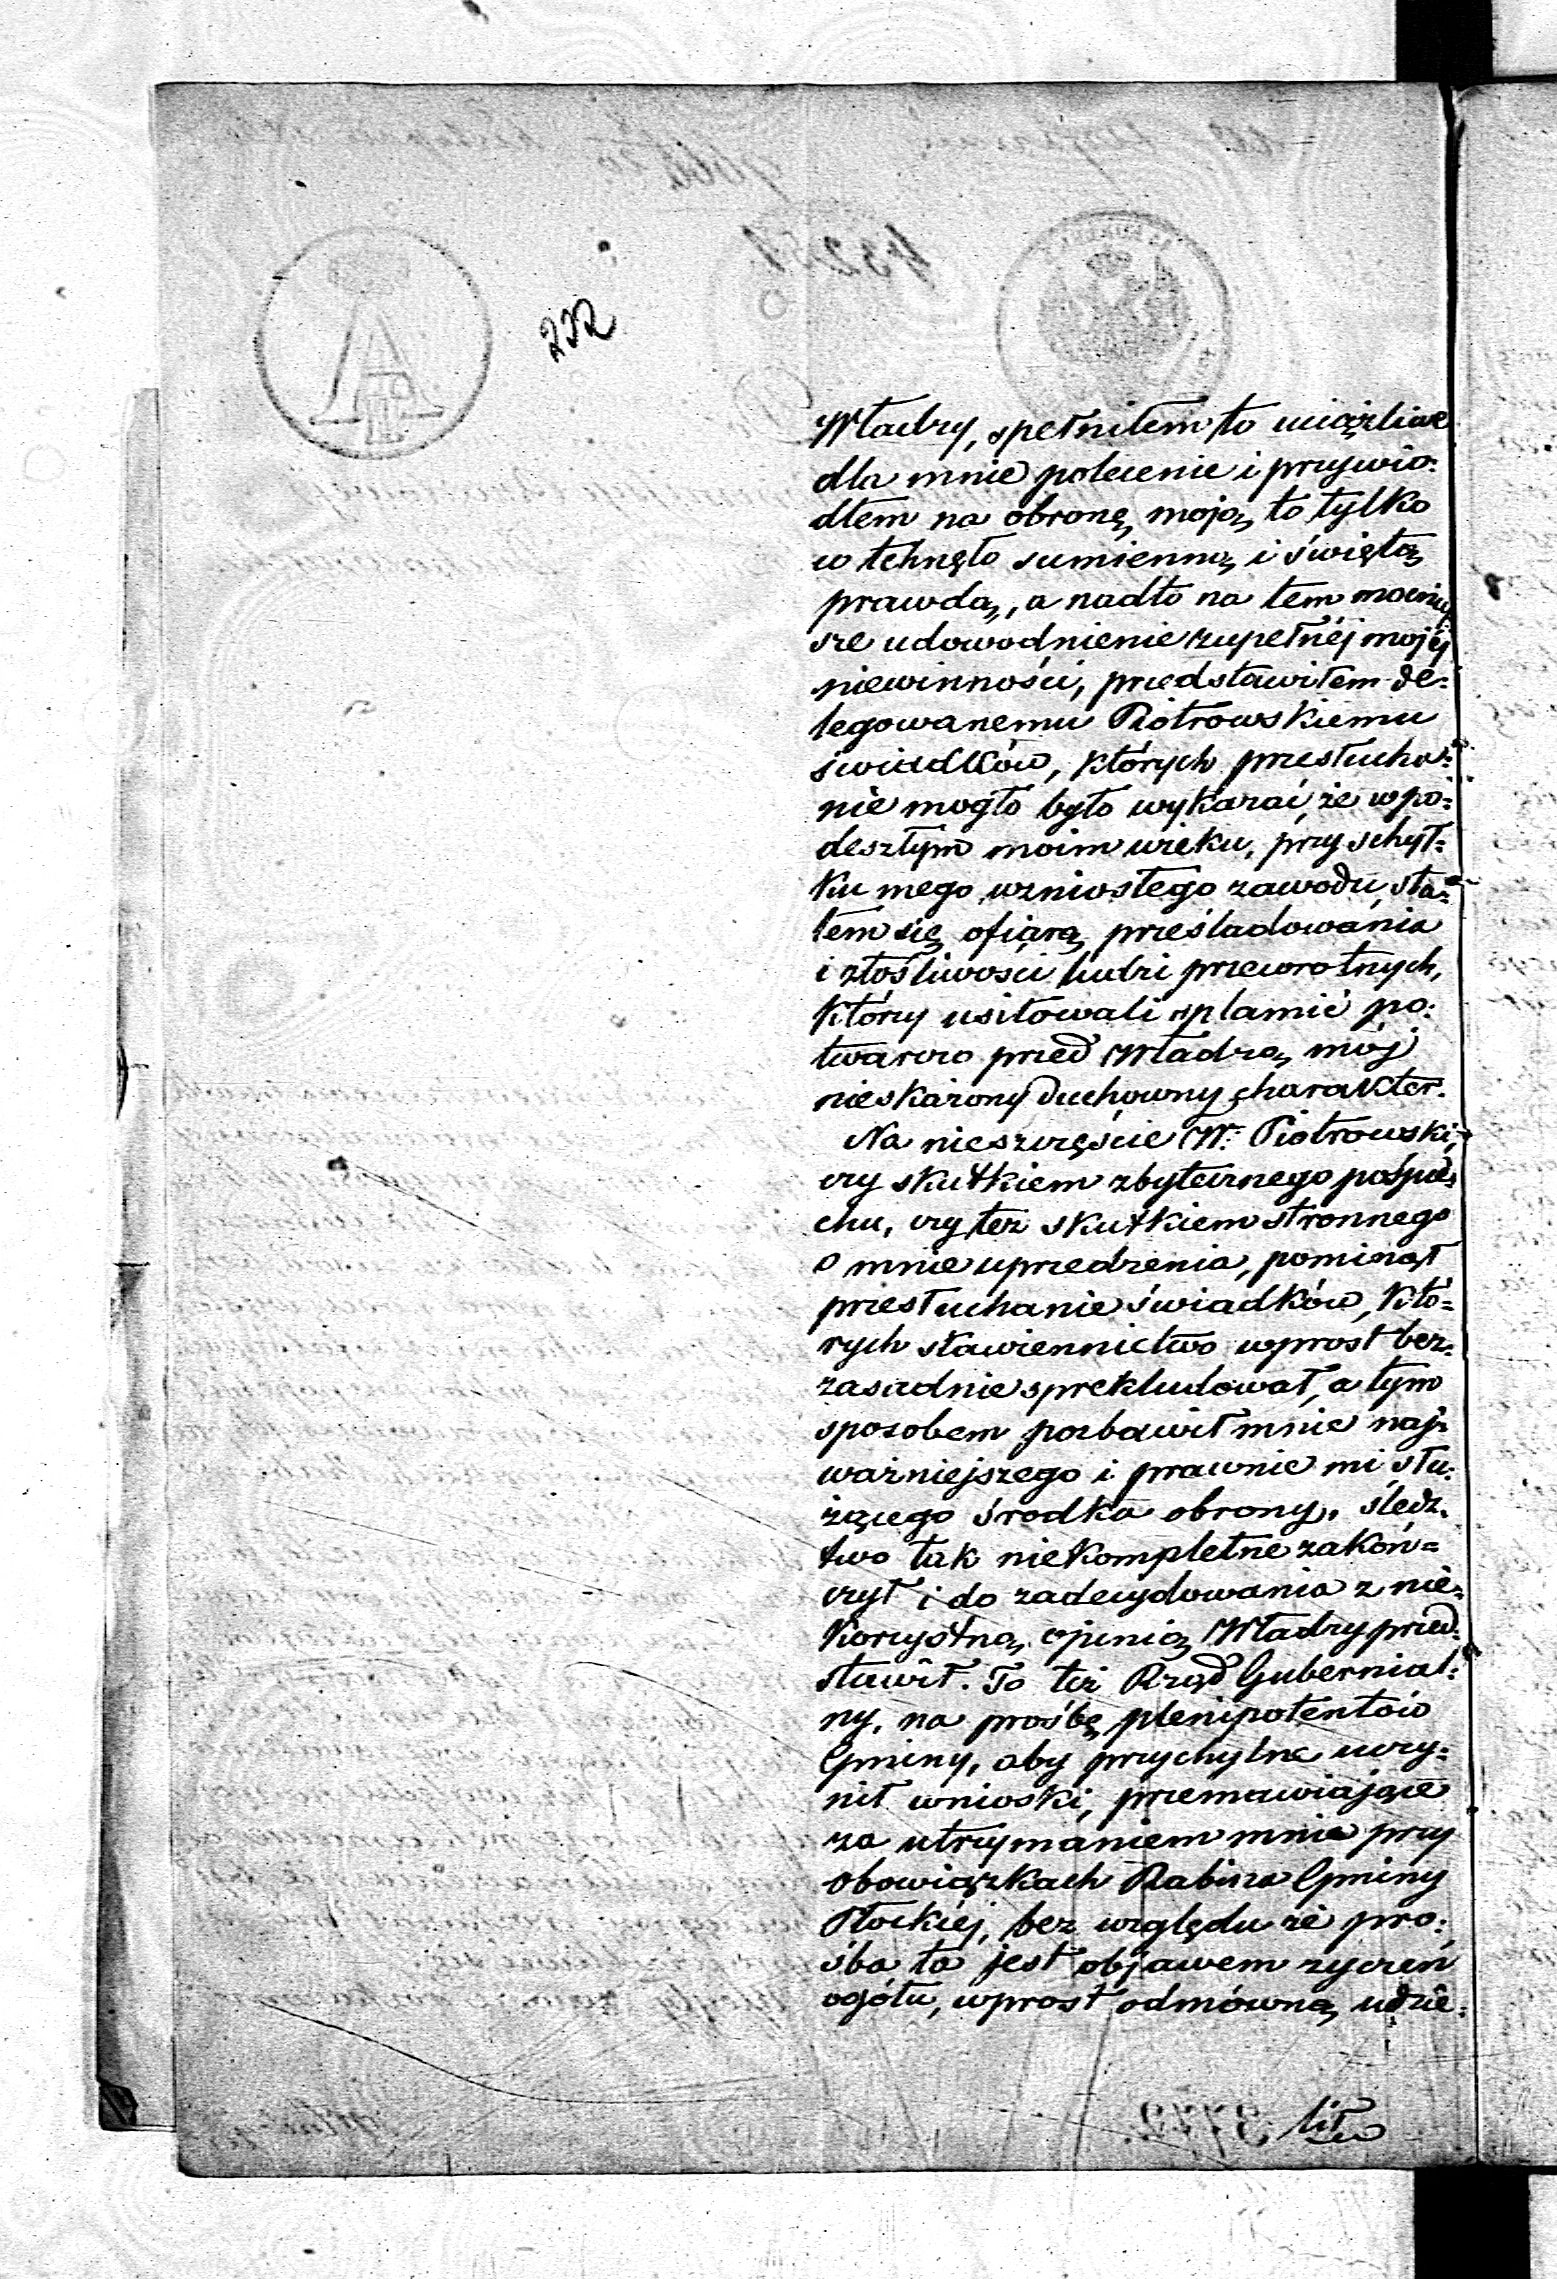 232
Władzy, spełniłem to uciążliwe
dla mnie polecenie i przywio-
dłem na obronę moją to tylko
co tchnęło sumienną i świętą
prawdą, a nadto na tem mocniej-
sze udowodnienie zupełnéj mojéj
niewinności, przedstawiłem de-
legowanemu Piotrowskiemu
świadków, których przesłucha-
nie mogło było wykazać, że w po-
deszłym moim wieku, przy schył-
ku mego wzniosłego zawodu, sta-
łem się ofiarą prześladowania
i złośliwości ludzi przewrotnych,
którzy usiłowali splamić po-
twarczo przed Władzą mój
nieskażony duchowny charakter.
Na nieszczęście W. Piotrowski,
czy skutkiem zbytecznego pośpie-
chu, czy też skutkiem stronnego
o mnie uprzedzenia, pominął
przesłuchanie świadków, któ-
rych stawiennictwo wprost bez-
zasadnie sprekludował, a tym
sposobem pozbawił mnie naj-
ważniejszego i prawnie mi słu-
żącego środka obrony. Śledz-
two tak niekompletne zakoń-
czył i do zadecydowania z nie-
korzystną opinią Władzy przed-
stawił. To też Rząd Gubernial-
ny, na prośbę plenipotentów
Gminy, aby przychylne uczy-
nił wnioski, przemawiające
za utrzymaniem mnie przy
obowiązkach Rabina Gminy
Płockiéj, bez względu że pro-
śba ta jest objawem życzeń
ogółu, wprost odmówną udzie-
liła